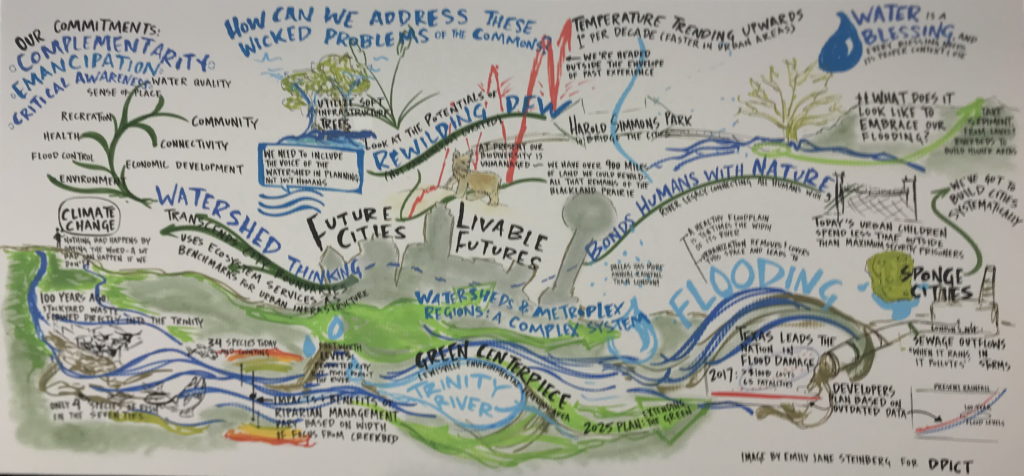 OUR COMMITMENTS:
COMPLEMENTARITY
EMANCIPATION
CRITICAL AWARENESS
WATER QUALITY
SENSE OF PLACE
RECREATION
HEALTH
FLOOD CONTROL
ENVIRONMENT
COMMUNITY
CONNECTIVITY
ECONOMIC DEVELOPMENT
HOW CAN WE ADDRESS THESE
WICKED PROBLEMS OF THE COMMONS
UTILIZE SOFT
INFRASTRUCTURE
TREES
WE NEED TO INCLUDE
THE VOICE OF THE
WATERSHED IN PLANNING
NOT JUST HUMANS
LOOK AT THE POTENTIALS OF
REWILDING DFW
AT PRESENT OUR
BIODIVERSITY IS
WE HAVE OVER 900 MILES
OF LAND WE COULD REWILD
ALL THAT REMAINS OF THE
BLACKLAND PRAIRIE
TEMPERATURE TRENDING UPWARDS
1° PER DECADE (FASTER IN URBAN AREAS)
WE'RE HEADED
OUTSIDE THE ENVELOPE
OF PAST EXPERIENCE
HAROLD SIMMONS PARK
BRIDGE THE CITY
WATER IS A
BLESSING AND
EVERY BLESSING NEEDS
ITS PROPER
WHAT DOES IT
LOOK LIKE TO
EMBRACE OUR
FLOODING?
TAKE
SEDIMENT
FROM
TO
BUILD HIGHER AREAS
BONDS HUMANS WITH NATURE
RIVER LEGACY CONNECTING ALL HUMANS WITH
TODAY'S URBAN CHILDREN
SPEND LESS TIME OUTSIDE
THAN MAXIMUM SECURITY
PRISONERS
WE'VE GOT TO
BUILD CITIES
SYSTEMATICALLY
SPONGE
CITIES
CLIMATE
CHANGE
NOTHING BAD HAPPENS BY
WATERSHED THINKING
TRANSCENDS
USES ECOSYSTEM SERVICES AS
BENCHMARKS FOR URBAN INFRASTRUCTURE
FUTURE
CITIES
LIVABLE
FUTURES
A HEALTHY FLOODPLAIN
THE WIDTH
OF ITS RIVER
URBANIZATION REMOVES
SPACE AND LEADS TO
FLOODING
DALLAS HAS MORE
ANNUAL RAINFALL
THAN LONDON
WATERSHEDS & METROPLEX
REGIONS: A COMPLEX SYSTEM
100 YEARS AGO
STOCKYARD WASTE
FLOWED DIRECTLY INTO THE TRINITY
34 SPECIES TODAY
ONLY 4 SPECIES OF FISH
IN THE SEVENTIES
LEVEES
THE RIVER
IMPACTS & BENEFITS OF
RIPARIAN MANAGEMENT
VARY BASED ON WIDTH
IF FOCUS FROM CREEKBED
GREEN CENTERPIECE
TRINITY
RIVER
2025 PLAN: EXTENDING
THE GREEN
TEXAS LEADS THE
NATION IN
FLOOD DAMAGE
2017:
FATALITIES
SEWAGE OUTFLOWS
WHEN IT RAINS IN
IT POLLUTES
DEVELOPERS
PLAN BASED ON
OUTDATED DATA
PRESENT RAINFALL
100 YEAR
FLOOD LEVELS
IMAGE BY EMILY JANE STEINBERG FOR DPICT